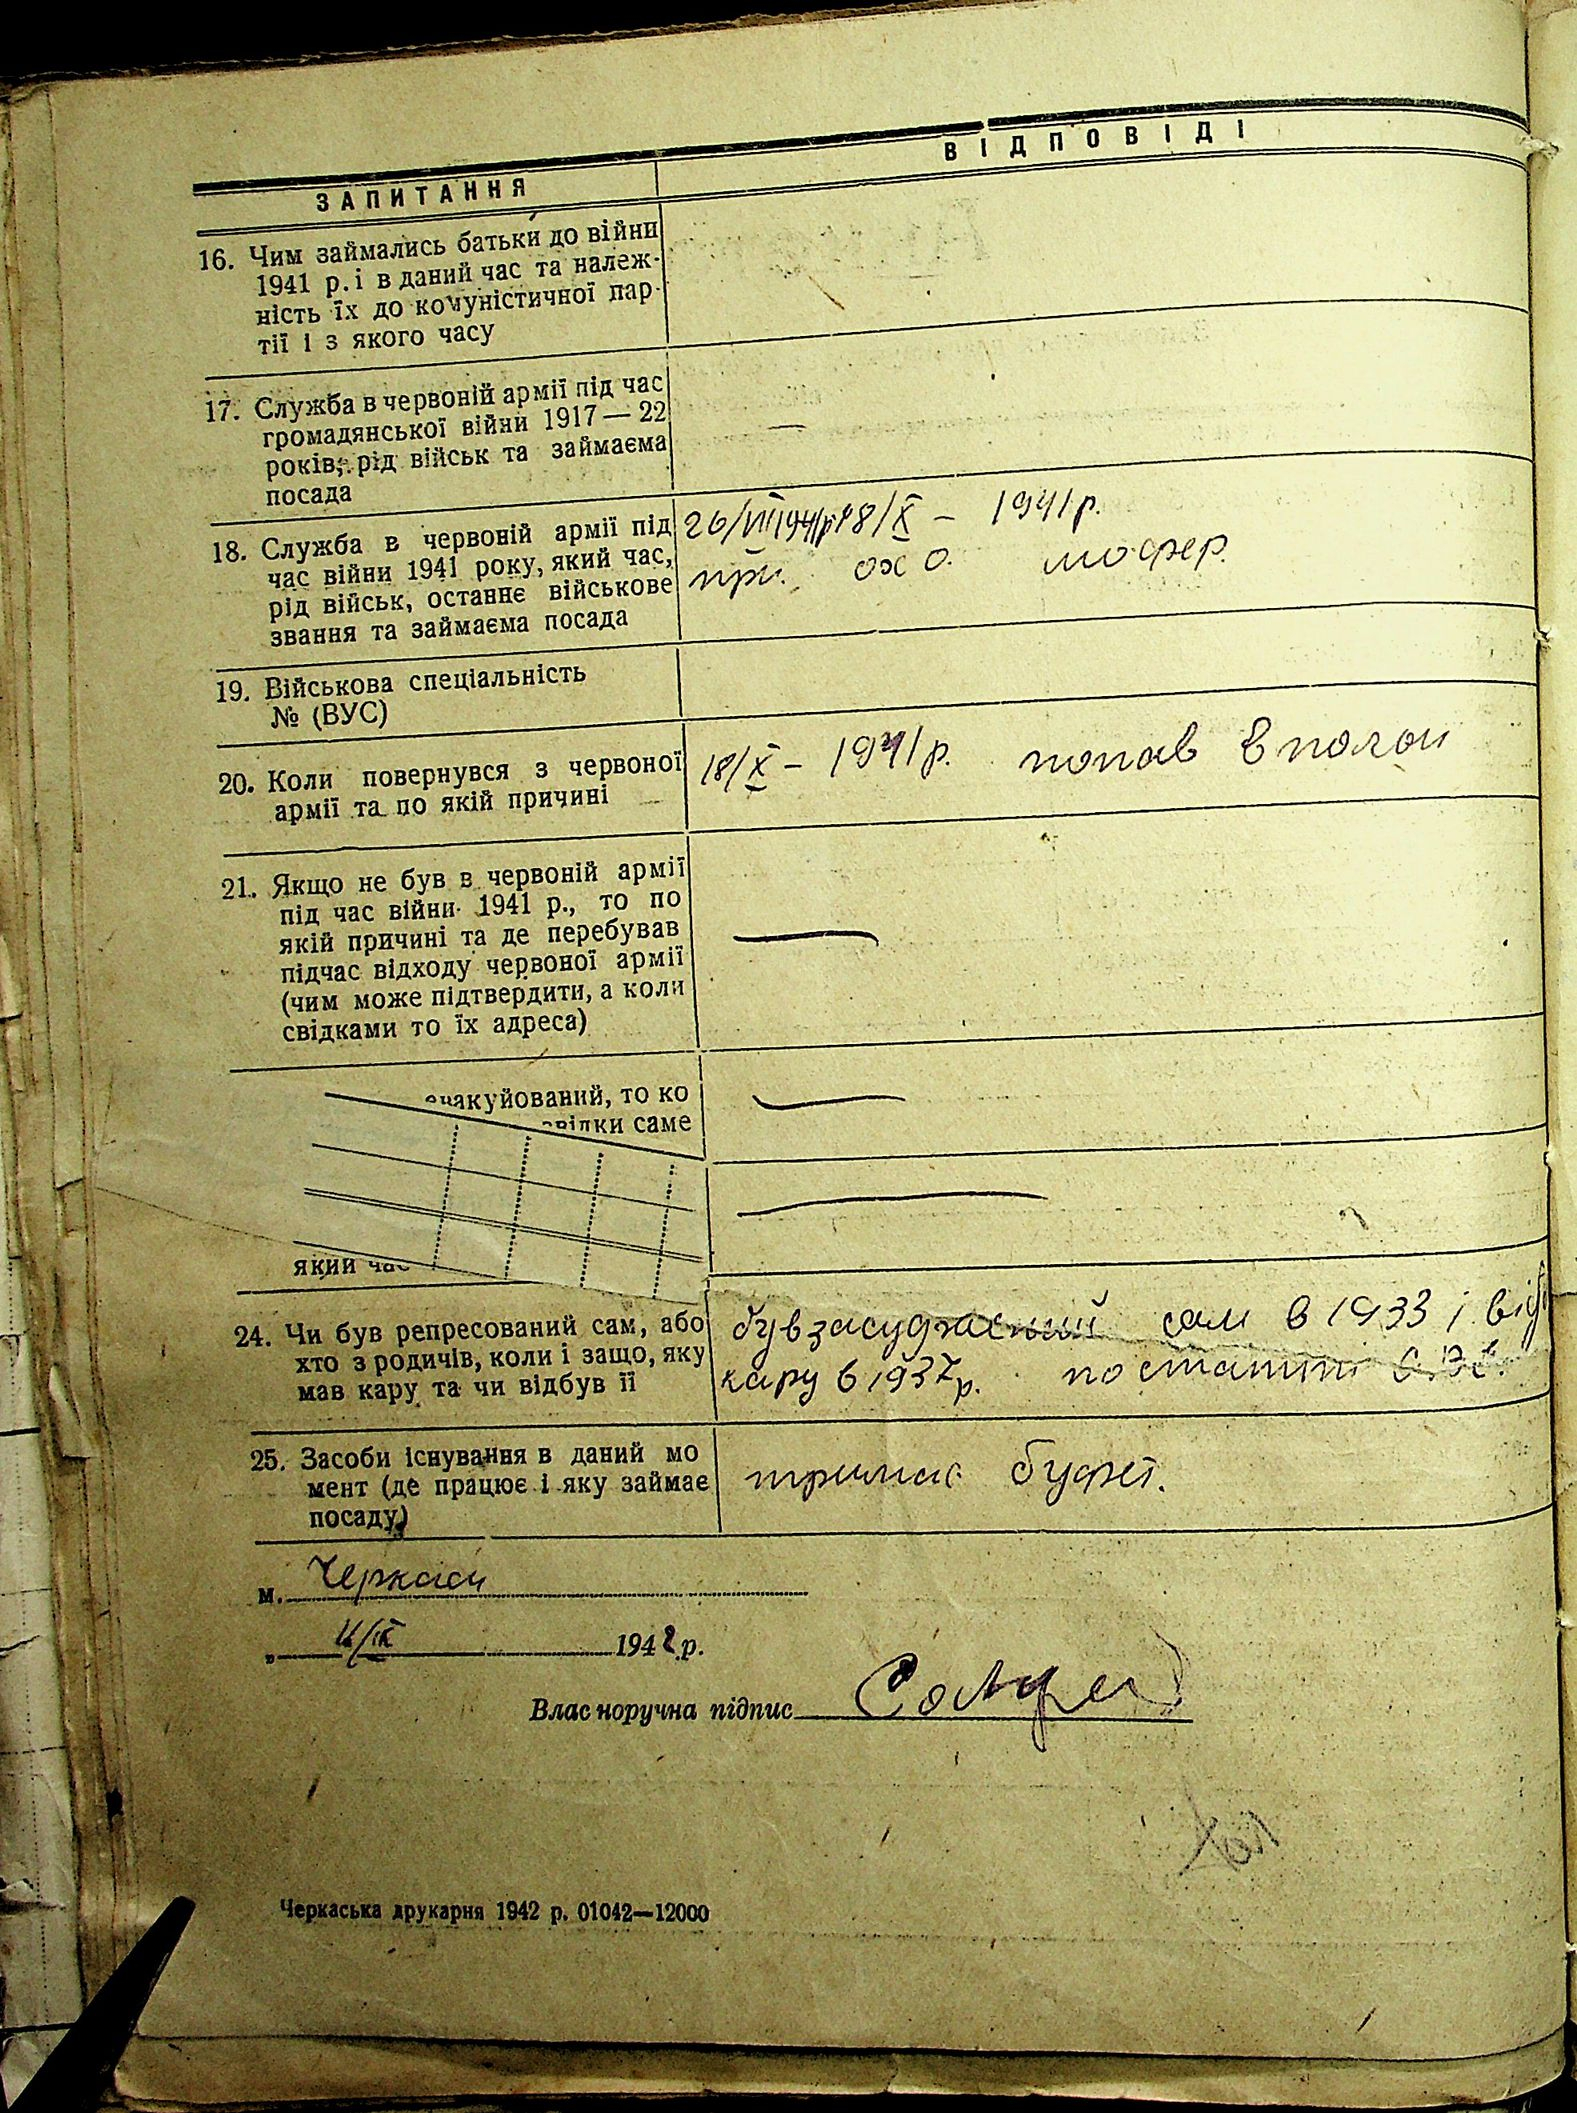 ЗАПИТАННЯ
ВІДПОВІДІ
16. Чим займались батьки до війни
1941 р. і в даний час та належ-
ність їх до комуністичної пар-
тії і з якого часу
17. Служба в червоній армії під час
громадянської війни 1917—22
років, рід військ та займаєма
посада
—
18. Служба в червоній армії під
час війни 1941 року, який час,
рід військ, останнє військове
звання та займаєма посада
26/VIII 1941р 18/X – 1941 р.
при. шофер.
19. Військова спеціальність
№ (ВУС)
20. Коли повернувся з червоної
армії та по якій причині
18/X – 1941 р. попав в полон
21. Якщо не був в червоній армії
під час війни 1941 р., то по
якій причині та де перебував
підчас відходу червоної армії
(чим може підтвердити, а коли
свідками то їх адреса)
—
евакуйований, то ко
звідки саме
—
—
який час
24. Чи був репресований сам, або
хто з родичів, коли і защо, яку
мав кару та чи відбув її
був засуджений сам в 1933 і відб
кару в 1937 р. по статті
25. Засоби існування в даний мо
мент (де працює і яку займає
посаду)
тримає буфет.
м. Черкаси
" /IX 1942 р.
Власноручна підпис
Черкаська друкарня 1942 р. 01042—12000